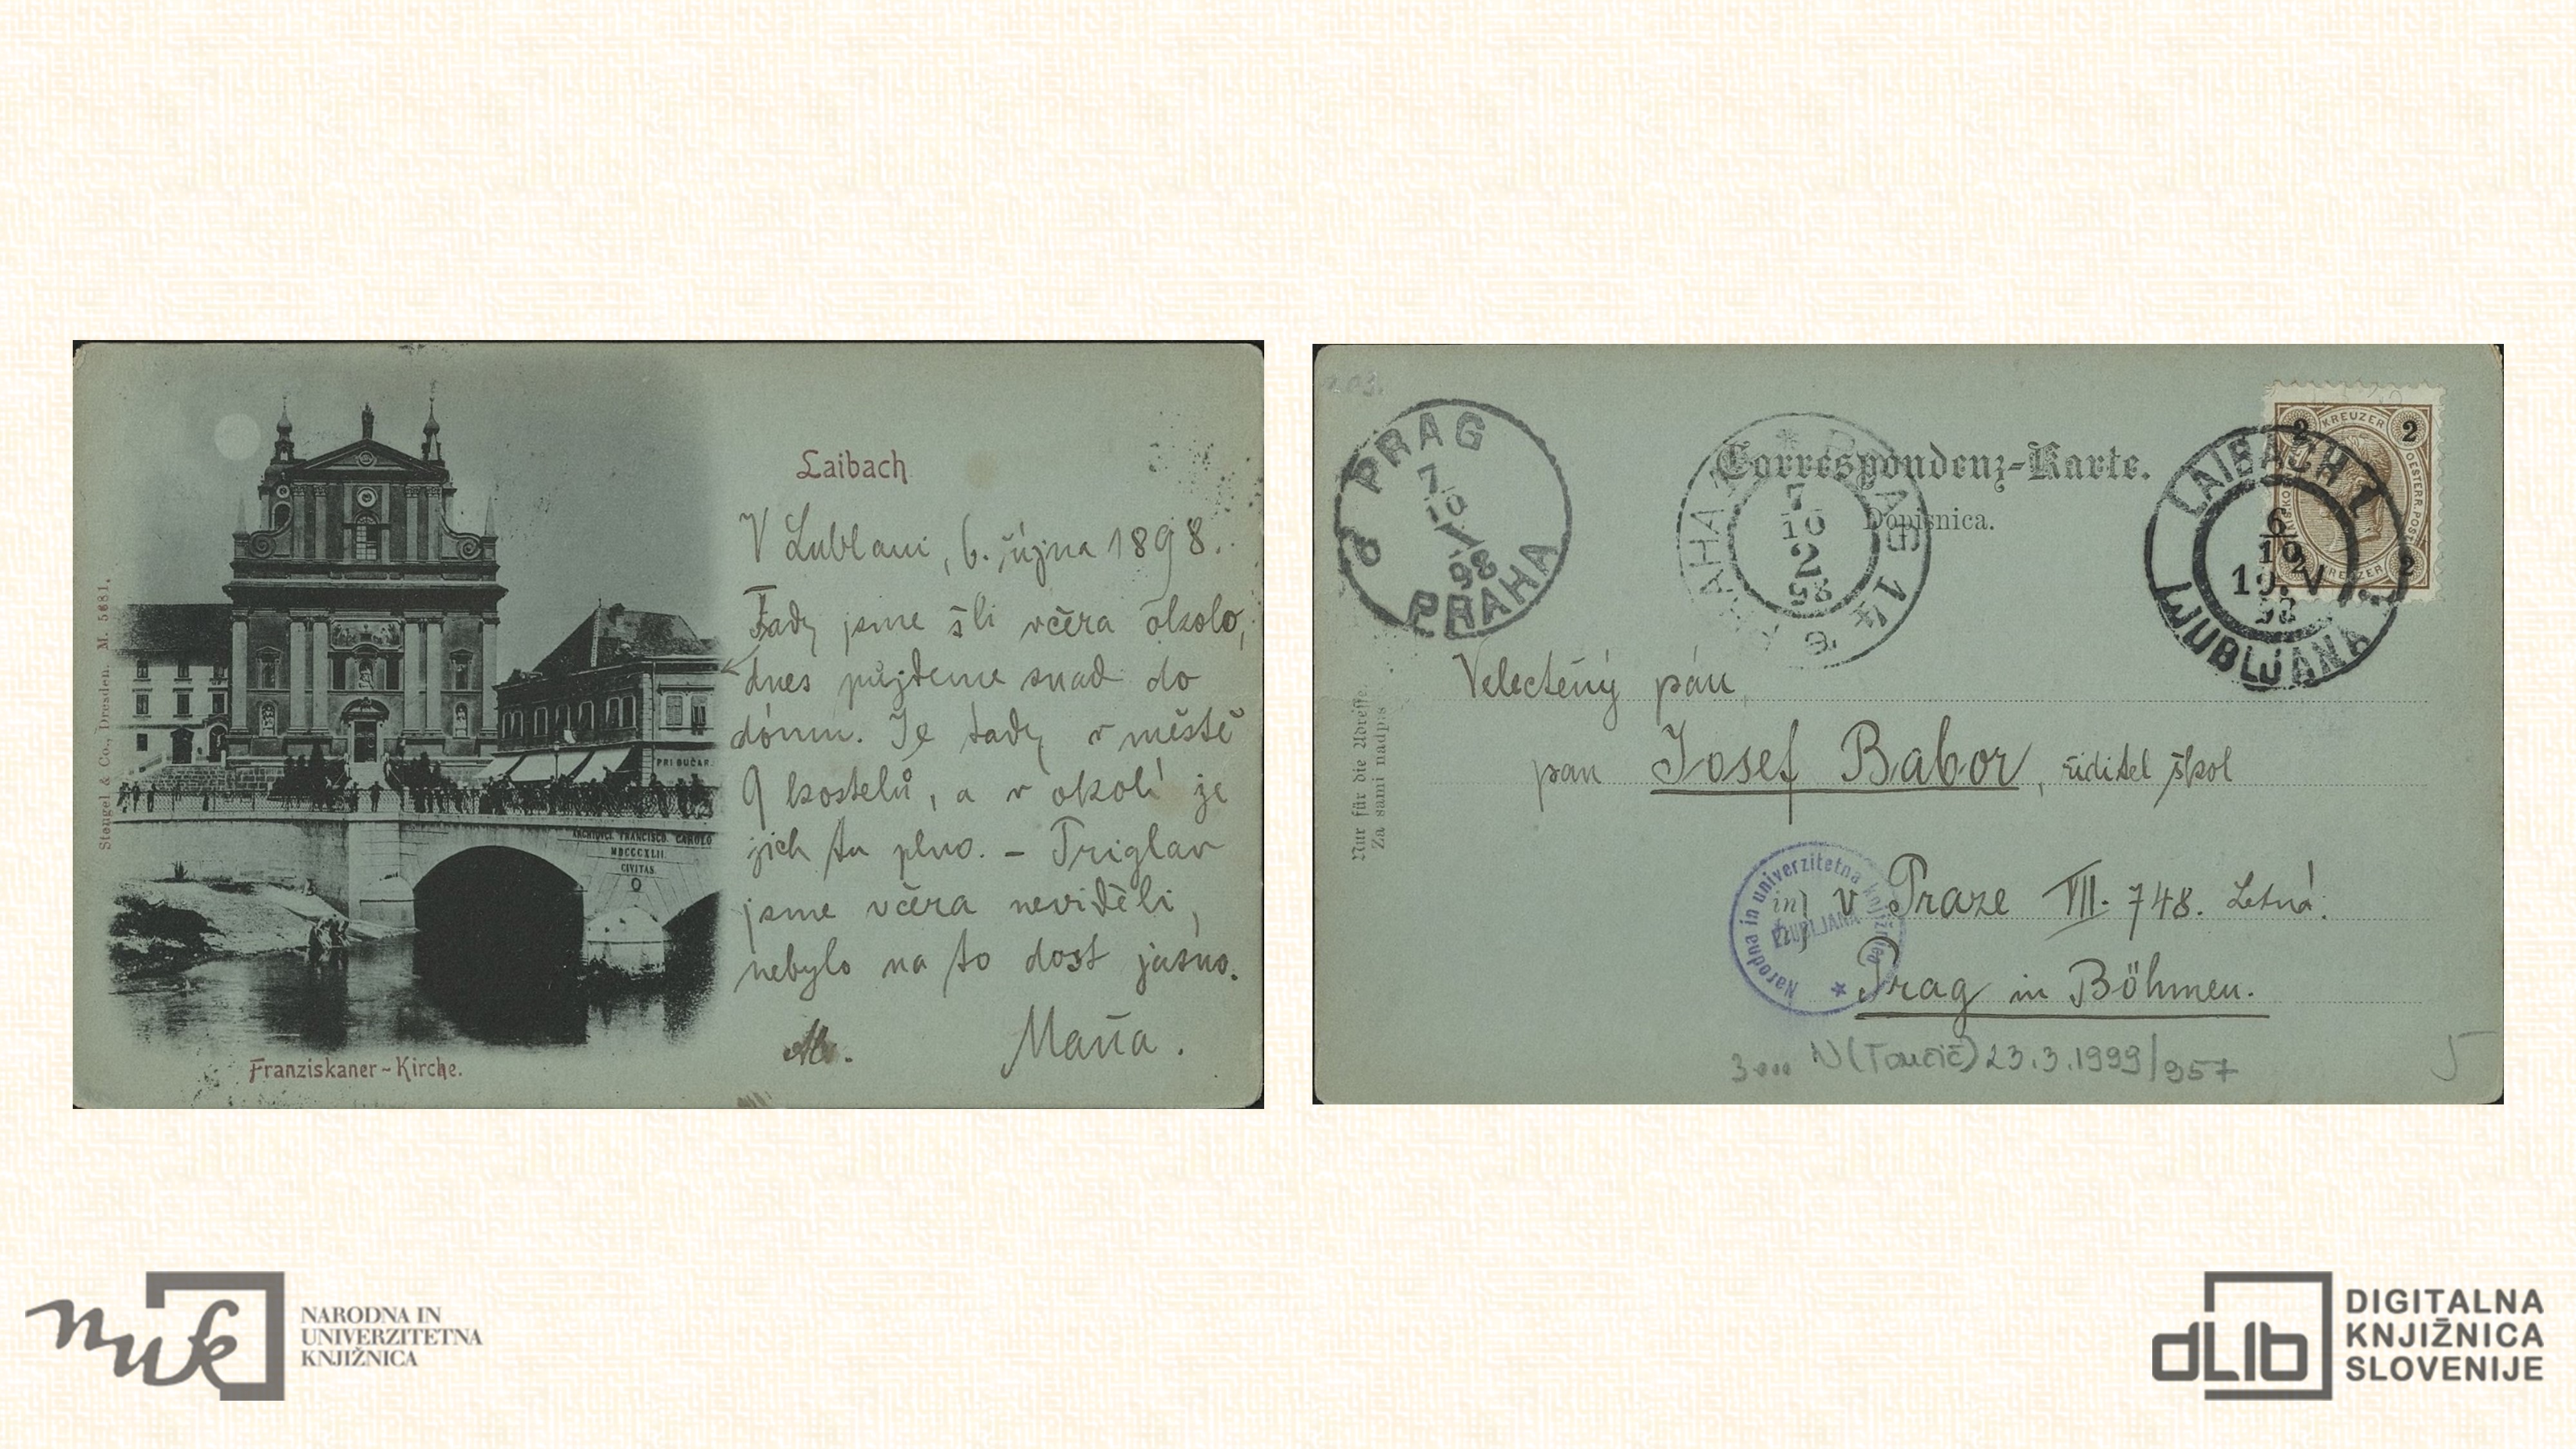 Laibach
V Lublani, 6. října 1898.
Tady jsme šli včera okolo,
dnes půjdeme snad do
dómu. Je tady v městě
9 kostelů, a v okolí je
jich tu plno. – Triglav
jsme včera neviděli,
nebylo na to dost jasno.
M. Maňa.
Stengel & Co., Dresden. M. 5681.
PRI BUČAR.
ARCHIDUCI. FRANCISCO. CAROLO
MDCCCXLII.
CIVITAS.
Franziskaner-Kirche.
203.
PRAG
7/10
98
PRAHA
Correspondenz-Karte.
Dopisnica.
7
10
2
98
KREUZER
2 2
2
LAIBACH 1
6
10
98
LJUBLJANA
Nur für die Adresse.
Za sami nadpis
Velectěný pán,
pan Josef Babor, řiditel škol
in v Praze VII. 748. Letná.
Prag in Böhmen.
Narodna in univerzitetna knjižnica
LJUBLJANA
N (Tančič) 23.3.1999/957
5
nuk
NARODNA IN
UNIVERZITETNA
KNJIŽNICA
dLib
DIGITALNA
KNJIŽNICA
SLOVENIJE